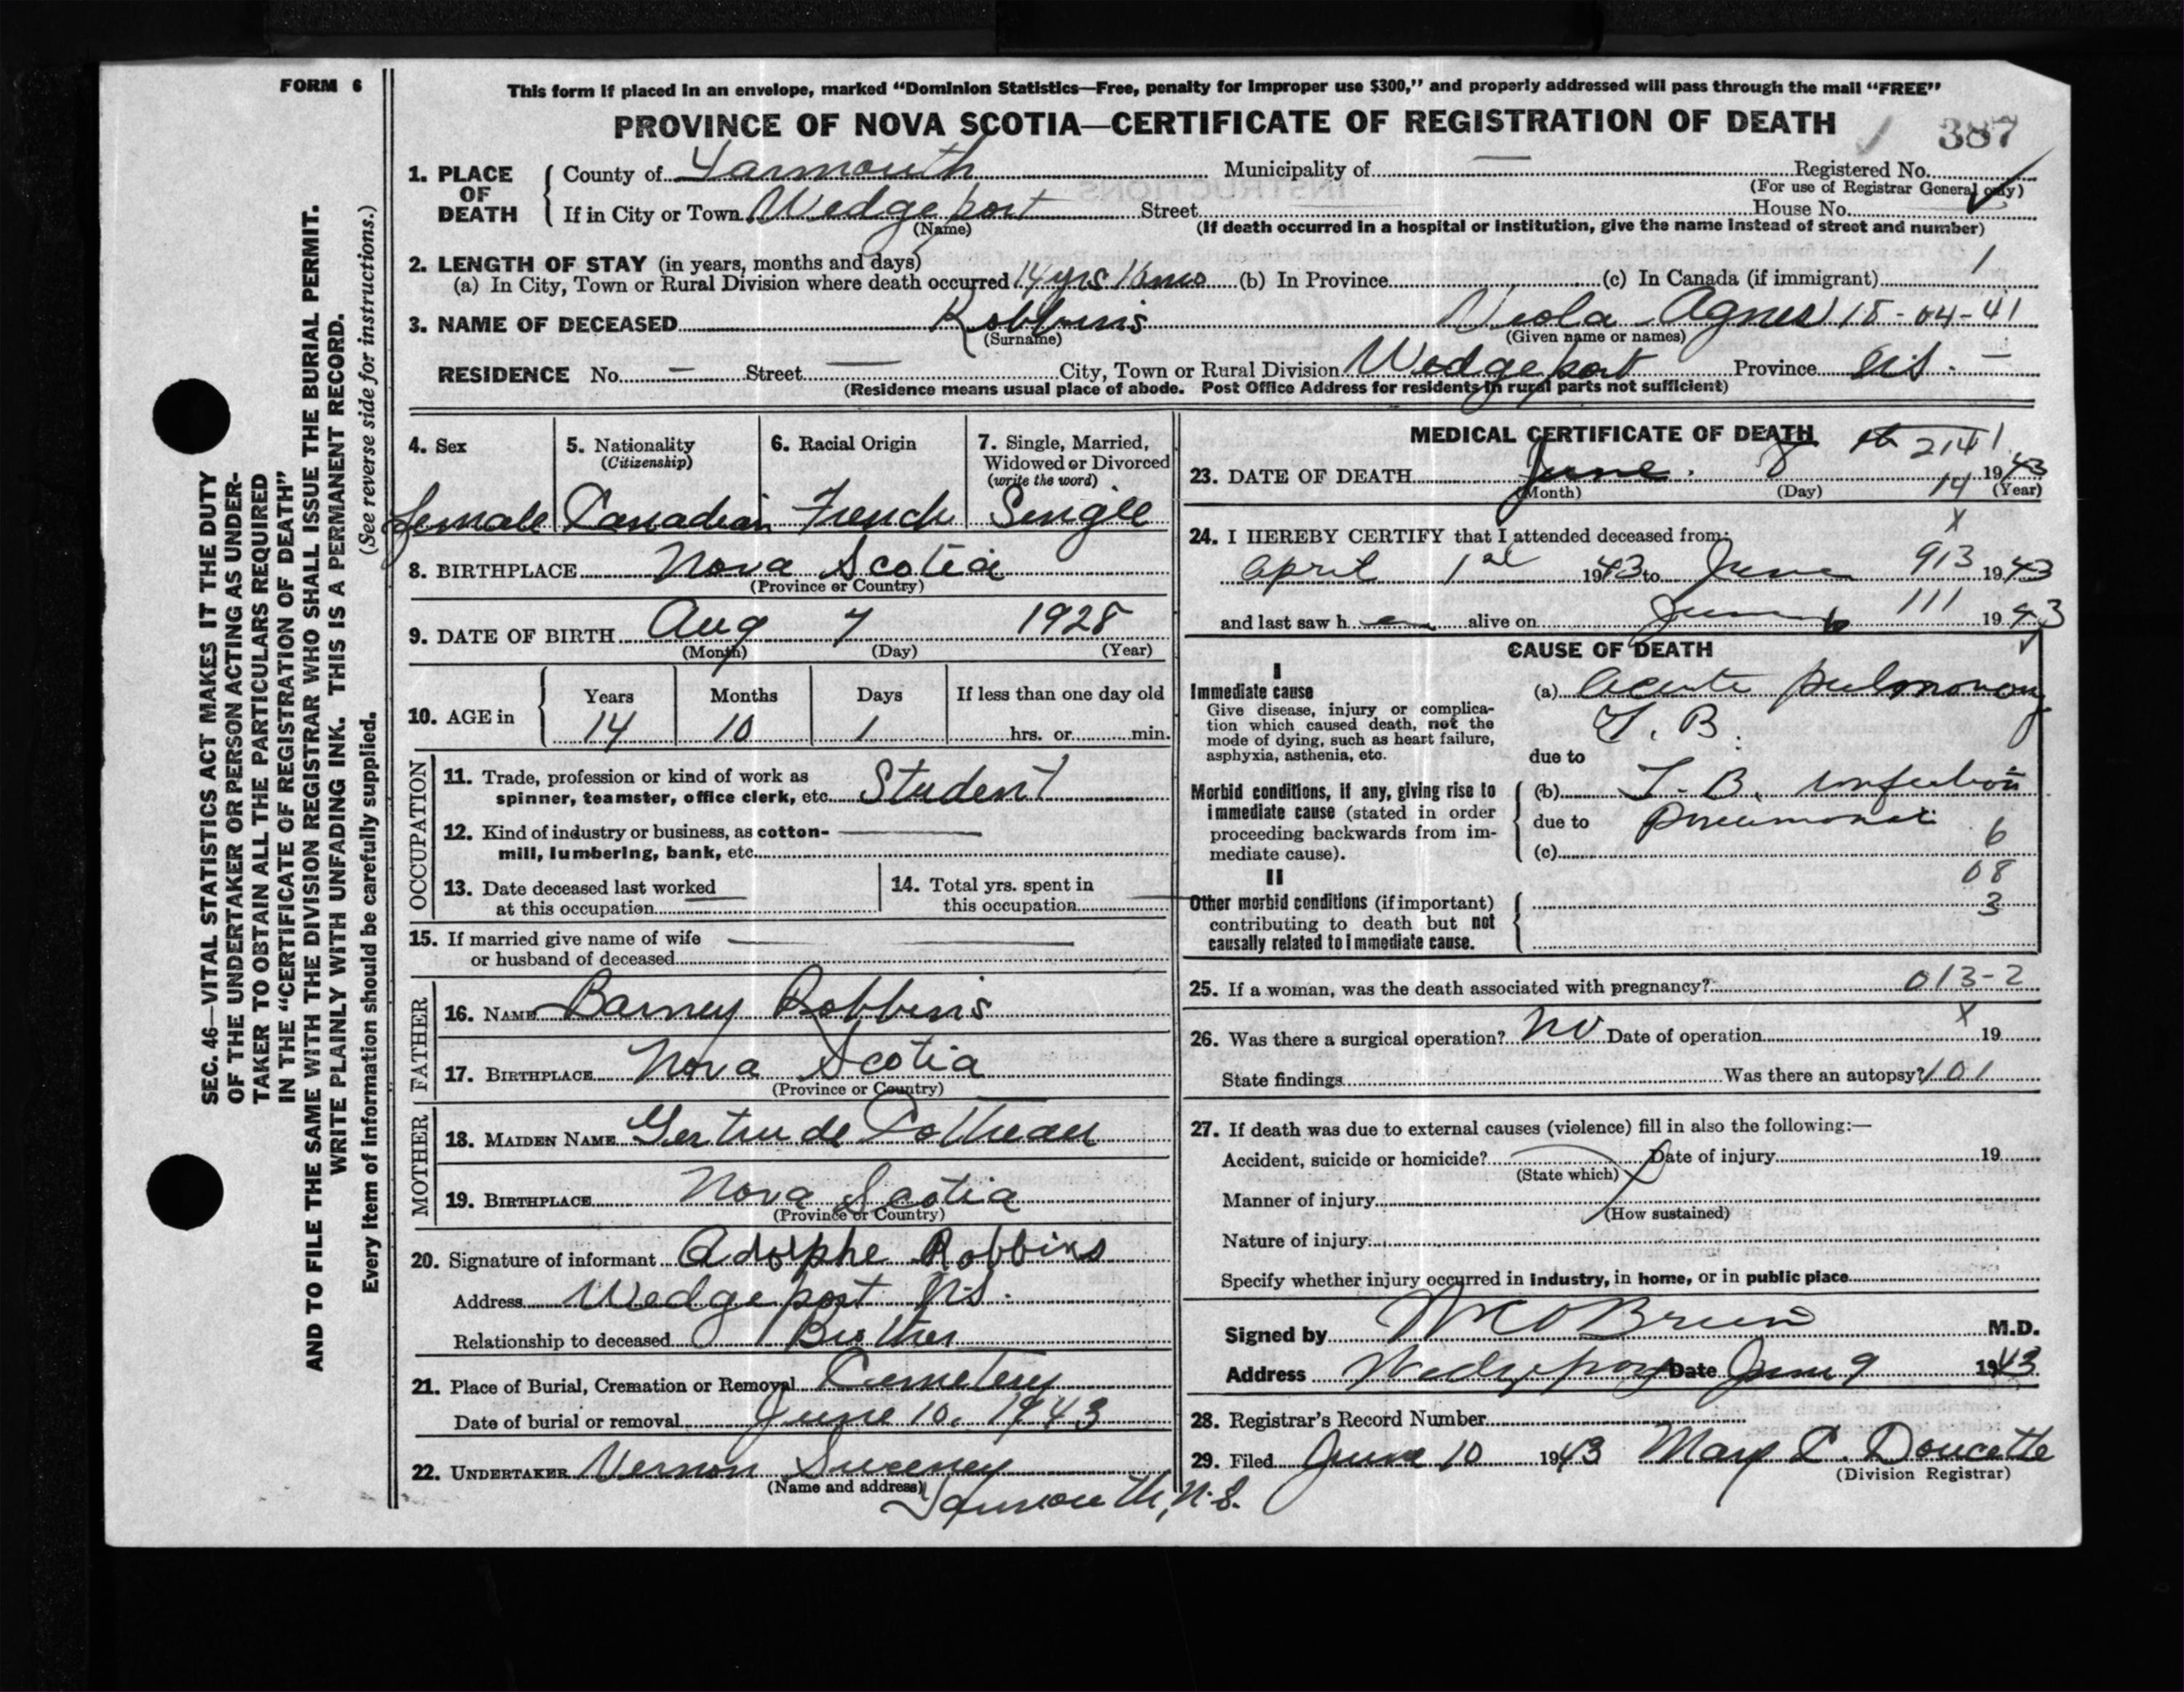 FORM 6
This form if placed in an envelope, marked "Dominion Statistics—Free, penalty for improper use $300," and properly addressed will pass through the mail "FREE"
PROVINCE OF NOVA SCOTIA—CERTIFICATE OF REGISTRATION OF DEATH
387
1. PLACE OF DEATH
County of Yarmouth Municipality of — Registered No.
(For use of Registrar General only)
If in City or Town Wedgeport Street House No.
(Name) (If death occurred in a hospital or institution, give the name instead of street and number)
2. LENGTH OF STAY (in years, months and days)
(a) In City, Town or Rural Division where death occurred 14 yrs 10 mos (b) In Province (c) In Canada (if immigrant) 1
3. NAME OF DECEASED Robbins Viola Agnes 18-04-41
(Surname) (Given name or names)
RESIDENCE No. — Street — City, Town or Rural Division Wedgeport Province N.S. —
(Residence means usual place of abode. Post Office Address for residents in rural parts not sufficient)
SEC. 46—VITAL STATISTICS ACT MAKES IT THE DUTY
OF THE UNDERTAKER OR PERSON ACTING AS UNDER-
TAKER TO OBTAIN ALL THE PARTICULARS REQUIRED
IN THE "CERTIFICATE OF REGISTRATION OF DEATH"
AND TO FILE THE SAME WITH THE DIVISION REGISTRAR WHO SHALL ISSUE THE BURIAL PERMIT.
WRITE PLAINLY WITH UNFADING INK. THIS IS A PERMANENT RECORD.
(See reverse side for instructions.)
Every item of information should be carefully supplied.
4. Sex 5. Nationality 6. Racial Origin 7. Single, Married,
(Citizenship) Widowed or Divorced
(write the word)
female Canadian French Single
8. BIRTHPLACE Nova Scotia
(Province or Country)
9. DATE OF BIRTH Aug 7 1928
(Month) (Day) (Year)
10. AGE in
Years Months Days If less than one day old
14 10 1 hrs. or min.
OCCUPATION
11. Trade, profession or kind of work as
spinner, teamster, office clerk, etc. Student
12. Kind of industry or business, as cotton- —
mill, lumbering, bank, etc.
13. Date deceased last worked — 14. Total yrs. spent in —
at this occupation this occupation
15. If married give name of wife — —
or husband of deceased
FATHER
16. NAME Barney Robbins
17. BIRTHPLACE Nova Scotia
(Province or Country)
MOTHER
18. MAIDEN NAME Gertrude Pothier
19. BIRTHPLACE Nova Scotia
(Province or Country)
20. Signature of informant Adolphe Robbins
Address Wedgeport N.S.
Relationship to deceased Brother
21. Place of Burial, Cremation or Removal Cemetery
Date of burial or removal June 10, 1943
22. UNDERTAKER Vernon Sweeney
(Name and address)
Yarmouth, N.S.
MEDICAL CERTIFICATE OF DEATH
2141
23. DATE OF DEATH June 8 th 1943
(Month) (Day) 14 (Year)
x
24. I HEREBY CERTIFY that I attended deceased from:
April 1st 1943 to June 913 1943
and last saw h er alive on June 111 1943
CAUSE OF DEATH
I
Immediate cause
Give disease, injury or complica-
tion which caused death, not the
mode of dying, such as heart failure,
asphyxia, asthenia, etc.
(a) Acute pulmonary
T. B.
due to
Morbid conditions, if any, giving rise to
immediate cause (stated in order
proceeding backwards from im-
mediate cause).
(b) T. B. infection
due to
6
(c)
II
08
Other morbid conditions (if important)
contributing to death but not
causally related to immediate cause.
3
25. If a woman, was the death associated with pregnancy? 013-2
x
26. Was there a surgical operation? No Date of operation 19
State findings Was there an autopsy? 101
27. If death was due to external causes (violence) fill in also the following:—
Accident, suicide or homicide? Date of injury 19
(State which)
Manner of injury
(How sustained)
Nature of injury
Specify whether injury occurred in industry, in home, or in public place
Signed by O'Brien M.D.
Address Wedgeport Date June 9 1943
28. Registrar's Record Number
29. Filed June 10 1943 Mary C. Doucette
(Division Registrar)